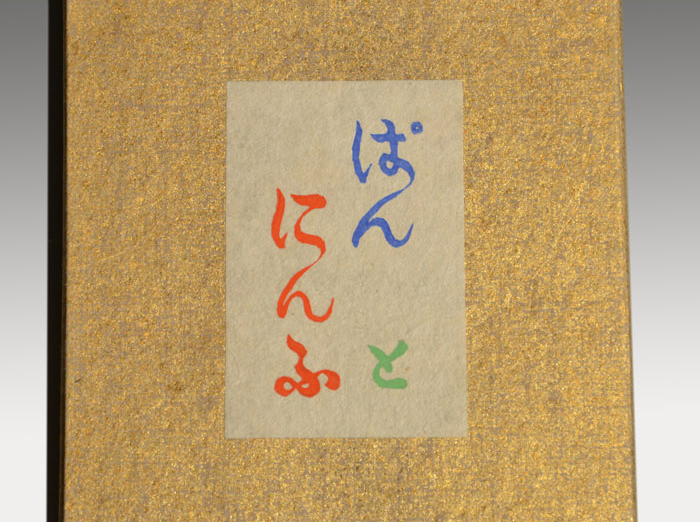 ぱんと
にんふ